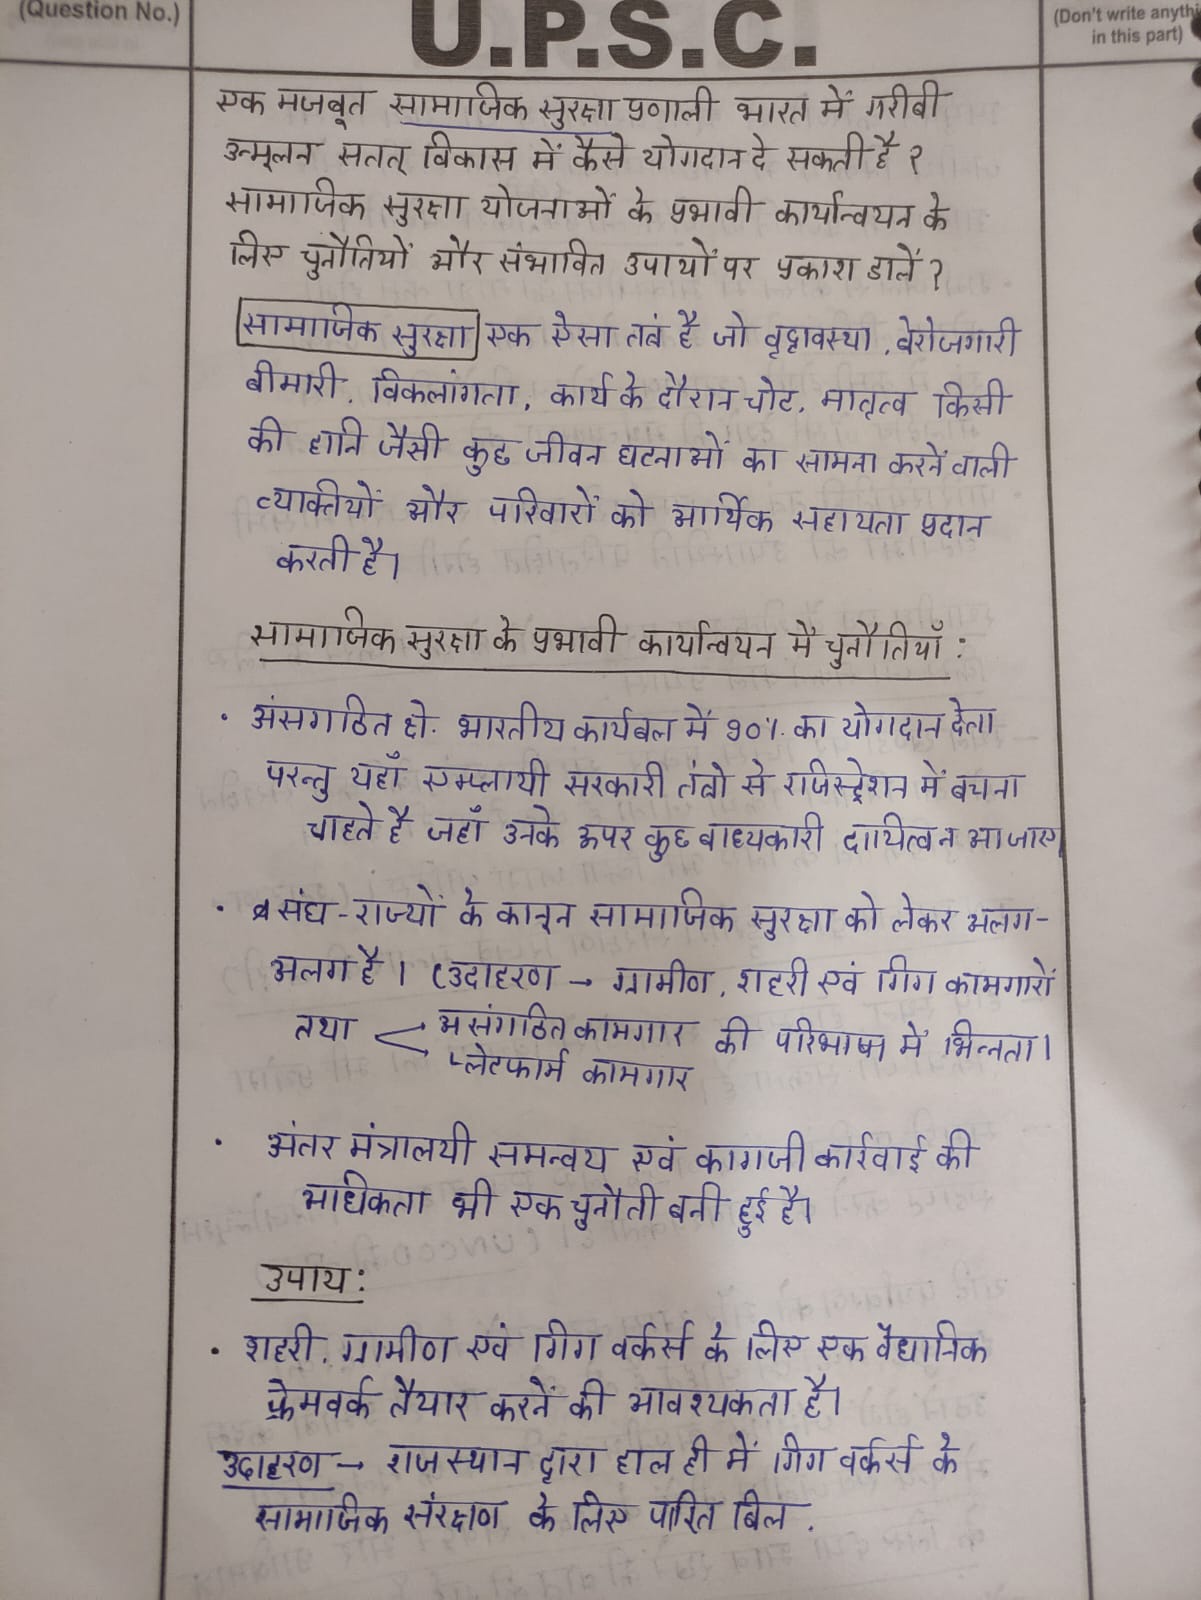 (Question No.)
U.P.S.C.
(Don't write anythi
in this part)
एक मजबूत सामाजिक सुरक्षा प्रणाली भारत में गरीबी
उन्मूलन सतत् विकास में कैसे योगदान दे सकती है ?
सामाजिक सुरक्षा योजनाओं के प्रभावी कार्यान्वयन के
लिए चुनौतियों और संभावित उपायों पर प्रकाश डालें ?
सामाजिक सुरक्षा एक ऐसा तंत्र है जो वृद्धावस्था, बेरोजगारी
बीमारी, विकलांगता, कार्य के दौरान चोट, मातृत्व किसी
की हानि जैसी कुछ जीवन घटनाओं का सामना करनें वाली
व्यक्तियों और परिवारों को आर्थिक सहायता प्रदान
करती है।
सामाजिक सुरक्षा के प्रभावी कार्यान्वयन में चुनौतियाँ :
• अंसगठित क्षे. भारतीय कार्यबल में 90% का योगदान देता
परन्तु यहाँ एम्प्लायी सरकारी तंत्रो से रजिस्ट्रेशन में बचना
चाहते है जहाँ उनके ऊपर कुछ बाध्यकारी दायित्व न आ जाए
• संघ-राज्यों के कानून सामाजिक सुरक्षा को लेकर अलग-
अलग है। (उदाहरण → ग्रामीण, शहरी एवं गिग कामगारों
तथा < असंगठित कामगार की परिभाषा में भिन्नता।
प्लेटफार्म कामगार
• अंतर मंत्रालयी समन्वय एवं कागजी कार्रवाई की
अधिकता भी एक चुनौती बनी हुई है।
उपाय :
• शहरी, ग्रामीण एवं गिग वर्कर्स के लिए एक वैधानिक
फ्रेमवर्क तैयार करनें की आवश्यकता है।
उदाहरण → राजस्थान द्वारा हाल ही में गिग वर्कर्स के
सामाजिक संरक्षण के लिए पारित बिल.